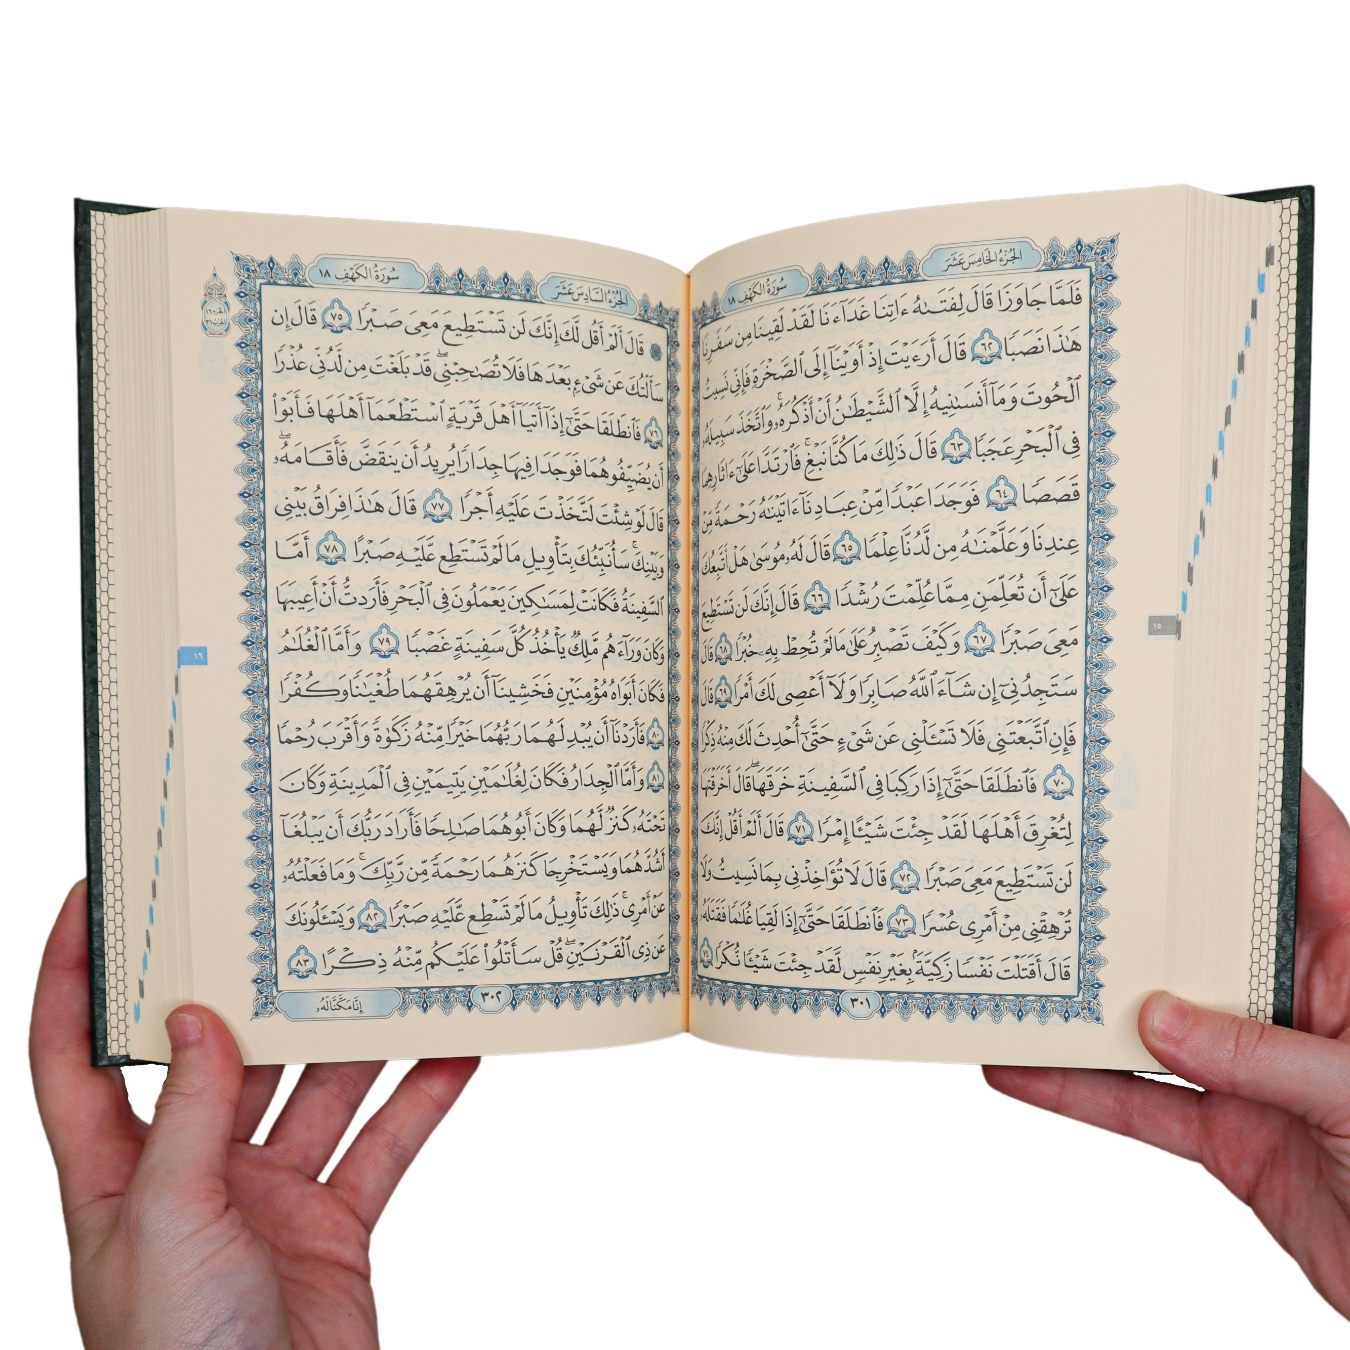 الجزء الخامس عشر
سورة الكهف ١٨
فَلَمَّا جَاوَزَا قَالَ لِفَتَىٰهُ ءَاتِنَا غَدَآءَنَا لَقَدۡ لَقِينَا مِن سَفَرِنَا
هَٰذَا نَصَبٗا ٦٢ قَالَ أَرَءَيۡتَ إِذۡ أَوَيۡنَآ إِلَى ٱلصَّخۡرَةِ فَإِنِّي نَسِيتُ
ٱلۡحُوتَ وَمَآ أَنسَىٰنِيهُ إِلَّا ٱلشَّيۡطَٰنُ أَنۡ أَذۡكُرَهُۥۚ وَٱتَّخَذَ سَبِيلَهُۥ
فِي ٱلۡبَحۡرِ عَجَبٗا ٦٣ قَالَ ذَٰلِكَ مَا كُنَّا نَبۡغِۚ فَٱرۡتَدَّا عَلَىٰٓ ءَاثَارِهِمَا
قَصَصٗا ٦٤ فَوَجَدَا عَبۡدٗا مِّنۡ عِبَادِنَآ ءَاتَيۡنَٰهُ رَحۡمَةٗ مِّنۡ
عِندِنَا وَعَلَّمۡنَٰهُ مِن لَّدُنَّا عِلۡمٗا ٦٥ قَالَ لَهُۥ مُوسَىٰ هَلۡ أَتَّبِعُكَ
عَلَىٰٓ أَن تُعَلِّمَنِ مِمَّا عُلِّمۡتَ رُشۡدٗا ٦٦ قَالَ إِنَّكَ لَن تَسۡتَطِيعَ
مَعِيَ صَبۡرٗا ٦٧ وَكَيۡفَ تَصۡبِرُ عَلَىٰ مَا لَمۡ تُحِطۡ بِهِۦ خُبۡرٗا ٦٨ قَالَ
سَتَجِدُنِيٓ إِن شَآءَ ٱللَّهُ صَابِرٗا وَلَآ أَعۡصِي لَكَ أَمۡرٗا ٦٩ قَالَ
فَإِنِ ٱتَّبَعۡتَنِي فَلَا تَسۡـَٔلۡنِي عَن شَيۡءٍ حَتَّىٰٓ أُحۡدِثَ لَكَ مِنۡهُ ذِكۡرٗا
٧٠ فَٱنطَلَقَا حَتَّىٰٓ إِذَا رَكِبَا فِي ٱلسَّفِينَةِ خَرَقَهَاۖ قَالَ أَخَرَقۡتَهَا
لِتُغۡرِقَ أَهۡلَهَا لَقَدۡ جِئۡتَ شَيۡـًٔا إِمۡرٗا ٧١ قَالَ أَلَمۡ أَقُلۡ إِنَّكَ
لَن تَسۡتَطِيعَ مَعِيَ صَبۡرٗا ٧٢ قَالَ لَا تُؤَاخِذۡنِي بِمَا نَسِيتُ وَلَا
تُرۡهِقۡنِي مِنۡ أَمۡرِي عُسۡرٗا ٧٣ فَٱنطَلَقَا حَتَّىٰٓ إِذَا لَقِيَا غُلَٰمٗا فَقَتَلَهُۥ
قَالَ أَقَتَلۡتَ نَفۡسٗا زَكِيَّةَۢ بِغَيۡرِ نَفۡسٖ لَّقَدۡ جِئۡتَ شَيۡـٔٗا نُّكۡرٗا ٧٤
٣٠١
١٥
الجزء السادس عشر
سورة الكهف ١٨
۞ قَالَ أَلَمۡ أَقُل لَّكَ إِنَّكَ لَن تَسۡتَطِيعَ مَعِيَ صَبۡرٗا ٧٥ قَالَ إِن
سَأَلۡتُكَ عَن شَيۡءِۭ بَعۡدَهَا فَلَا تُصَٰحِبۡنِيۖ قَدۡ بَلَغۡتَ مِن لَّدُنِّي عُذۡرٗا
٧٦ فَٱنطَلَقَا حَتَّىٰٓ إِذَآ أَتَيَآ أَهۡلَ قَرۡيَةٍ ٱسۡتَطۡعَمَآ أَهۡلَهَا فَأَبَوۡاْ
أَن يُضَيِّفُوهُمَا فَوَجَدَا فِيهَا جِدَارٗا يُرِيدُ أَن يَنقَضَّ فَأَقَامَهُۥۖ
قَالَ لَوۡ شِئۡتَ لَتَّخَذۡتَ عَلَيۡهِ أَجۡرٗا ٧٧ قَالَ هَٰذَا فِرَاقُ بَيۡنِي
وَبَيۡنِكَۚ سَأُنَبِّئُكَ بِتَأۡوِيلِ مَا لَمۡ تَسۡتَطِع عَّلَيۡهِ صَبۡرًا ٧٨ أَمَّا
ٱلسَّفِينَةُ فَكَانَتۡ لِمَسَٰكِينَ يَعۡمَلُونَ فِي ٱلۡبَحۡرِ فَأَرَدتُّ أَنۡ أَعِيبَهَا
وَكَانَ وَرَآءَهُم مَّلِكٞ يَأۡخُذُ كُلَّ سَفِينَةٍ غَصۡبٗا ٧٩ وَأَمَّا ٱلۡغُلَٰمُ
فَكَانَ أَبَوَاهُ مُؤۡمِنَيۡنِ فَخَشِينَآ أَن يُرۡهِقَهُمَا طُغۡيَٰنٗا وَكُفۡرٗا
٨٠ فَأَرَدۡنَآ أَن يُبۡدِلَهُمَا رَبُّهُمَا خَيۡرٗا مِّنۡهُ زَكَوٰةٗ وَأَقۡرَبَ رُحۡمٗا
٨١ وَأَمَّا ٱلۡجِدَارُ فَكَانَ لِغُلَٰمَيۡنِ يَتِيمَيۡنِ فِي ٱلۡمَدِينَةِ وَكَانَ
تَحۡتَهُۥ كَنزٞ لَّهُمَا وَكَانَ أَبُوهُمَا صَٰلِحٗا فَأَرَادَ رَبُّكَ أَن يَبۡلُغَآ
أَشُدَّهُمَا وَيَسۡتَخۡرِجَا كَنزَهُمَا رَحۡمَةٗ مِّن رَّبِّكَۚ وَمَا فَعَلۡتُهُۥ
عَنۡ أَمۡرِيۚ ذَٰلِكَ تَأۡوِيلُ مَا لَمۡ تَسۡطِع عَّلَيۡهِ صَبۡرٗا ٨٢ وَيَسۡـَٔلُونَكَ
عَن ذِي ٱلۡقَرۡنَيۡنِۖ قُلۡ سَأَتۡلُواْ عَلَيۡكُم مِّنۡهُ ذِكۡرًا ٨٣
٣٠٢
إِنَّا مَكَّنَّا لَهُۥ
١٦